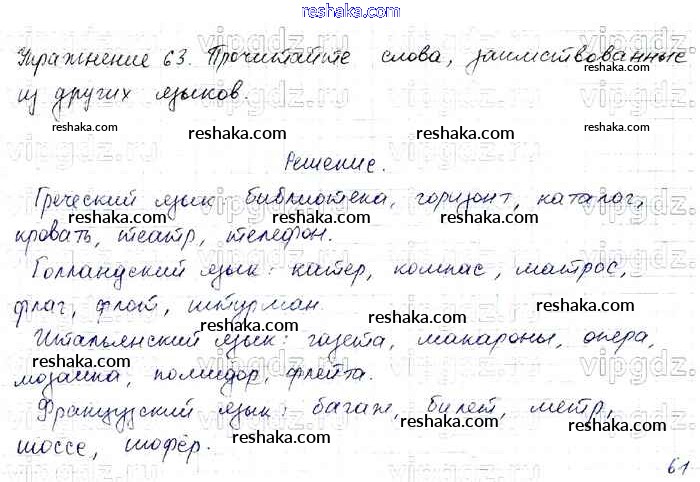 reshaka.com
Упражнение 63. Прочитайте слова, заимствованные
из других языков.
reshaka.com reshaka.com reshaka.com
reshaka.com reshaka.com reshaka.com
Решение.
Греческий язык: библиотека, горизонт, каталог,
reshaka.com reshaka.com reshaka.com
кровать, театр, телефон.
Голландский язык: катер, компас, матрос,
reshaka.com reshaka.com reshaka.com
флаг, флот, штурман.
reshaka.com reshaka.com reshaka.com
Итальянский язык: газета, макароны, опера,
reshaka.com reshaka.com reshaka.com
мозаика, помидор, флейта.
Французский язык: багаж, билет, метр,
reshaka.com reshaka.com reshaka.com
шоссе, шофёр.
reshaka.com reshaka.com reshaka.com
61